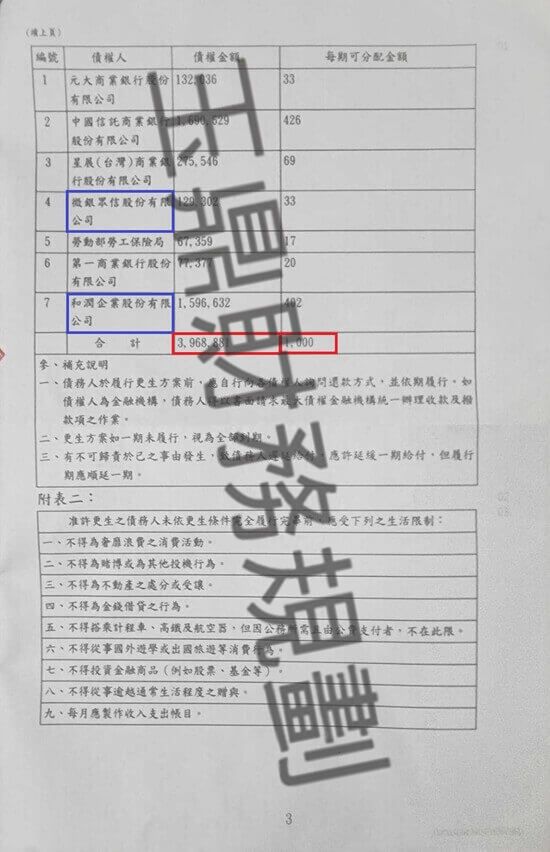 (續上頁)
編號 債權人 債權金額 每期可分配金額
1 元大商業銀行股份 132,036 33
有限公司
2 中國信託商業銀行 1,690,629 426
股份有限公司
3 星展(台灣)商業銀 275,546 69
行股份有限公司
4 微銀眾信股份有限 129,302 33
公司
5 勞動部勞工保險局 67,359 17
6 第一商業銀行股份 77,377 20
有限公司
7 和潤企業股份有限 1,596,632 402
公司
合 計 3,968,881 1,000
參、補充說明
一、債務人於履行更生方案前,應自行向各債權人詢問還款方式,並依期履行。如
債權人為金融機構,債務人得以書面請求最大債權金融機構統一辦理收款及撥
款項之作業。
二、更生方案如一期未履行,視為全部到期。
三、有不可歸責於己之事由發生,致債務人遲延給付,應許延緩一期給付,但履行
期應順延一期。
附表二:
准許更生之債務人未依更生條件完全履行完畢前,應受下列之生活限制:
一、不得為奢靡浪費之消費活動。
二、不得為賭博或為其他投機行為。
三、不得為不動產之處分或受讓。
四、不得為金錢借貸之行為。
五、不得搭乘計程車、高鐵及航空器,但因公務所需且由公費支付者,不在此限。
六、不得從事國外遊學或出國旅遊等消費行為。
七、不得投資金融商品(例如股票、基金等)。
八、不得從事逾越通常生活程度之贈與。
九、每月應製作收入支出帳目。
3
玉鼎財務規劃